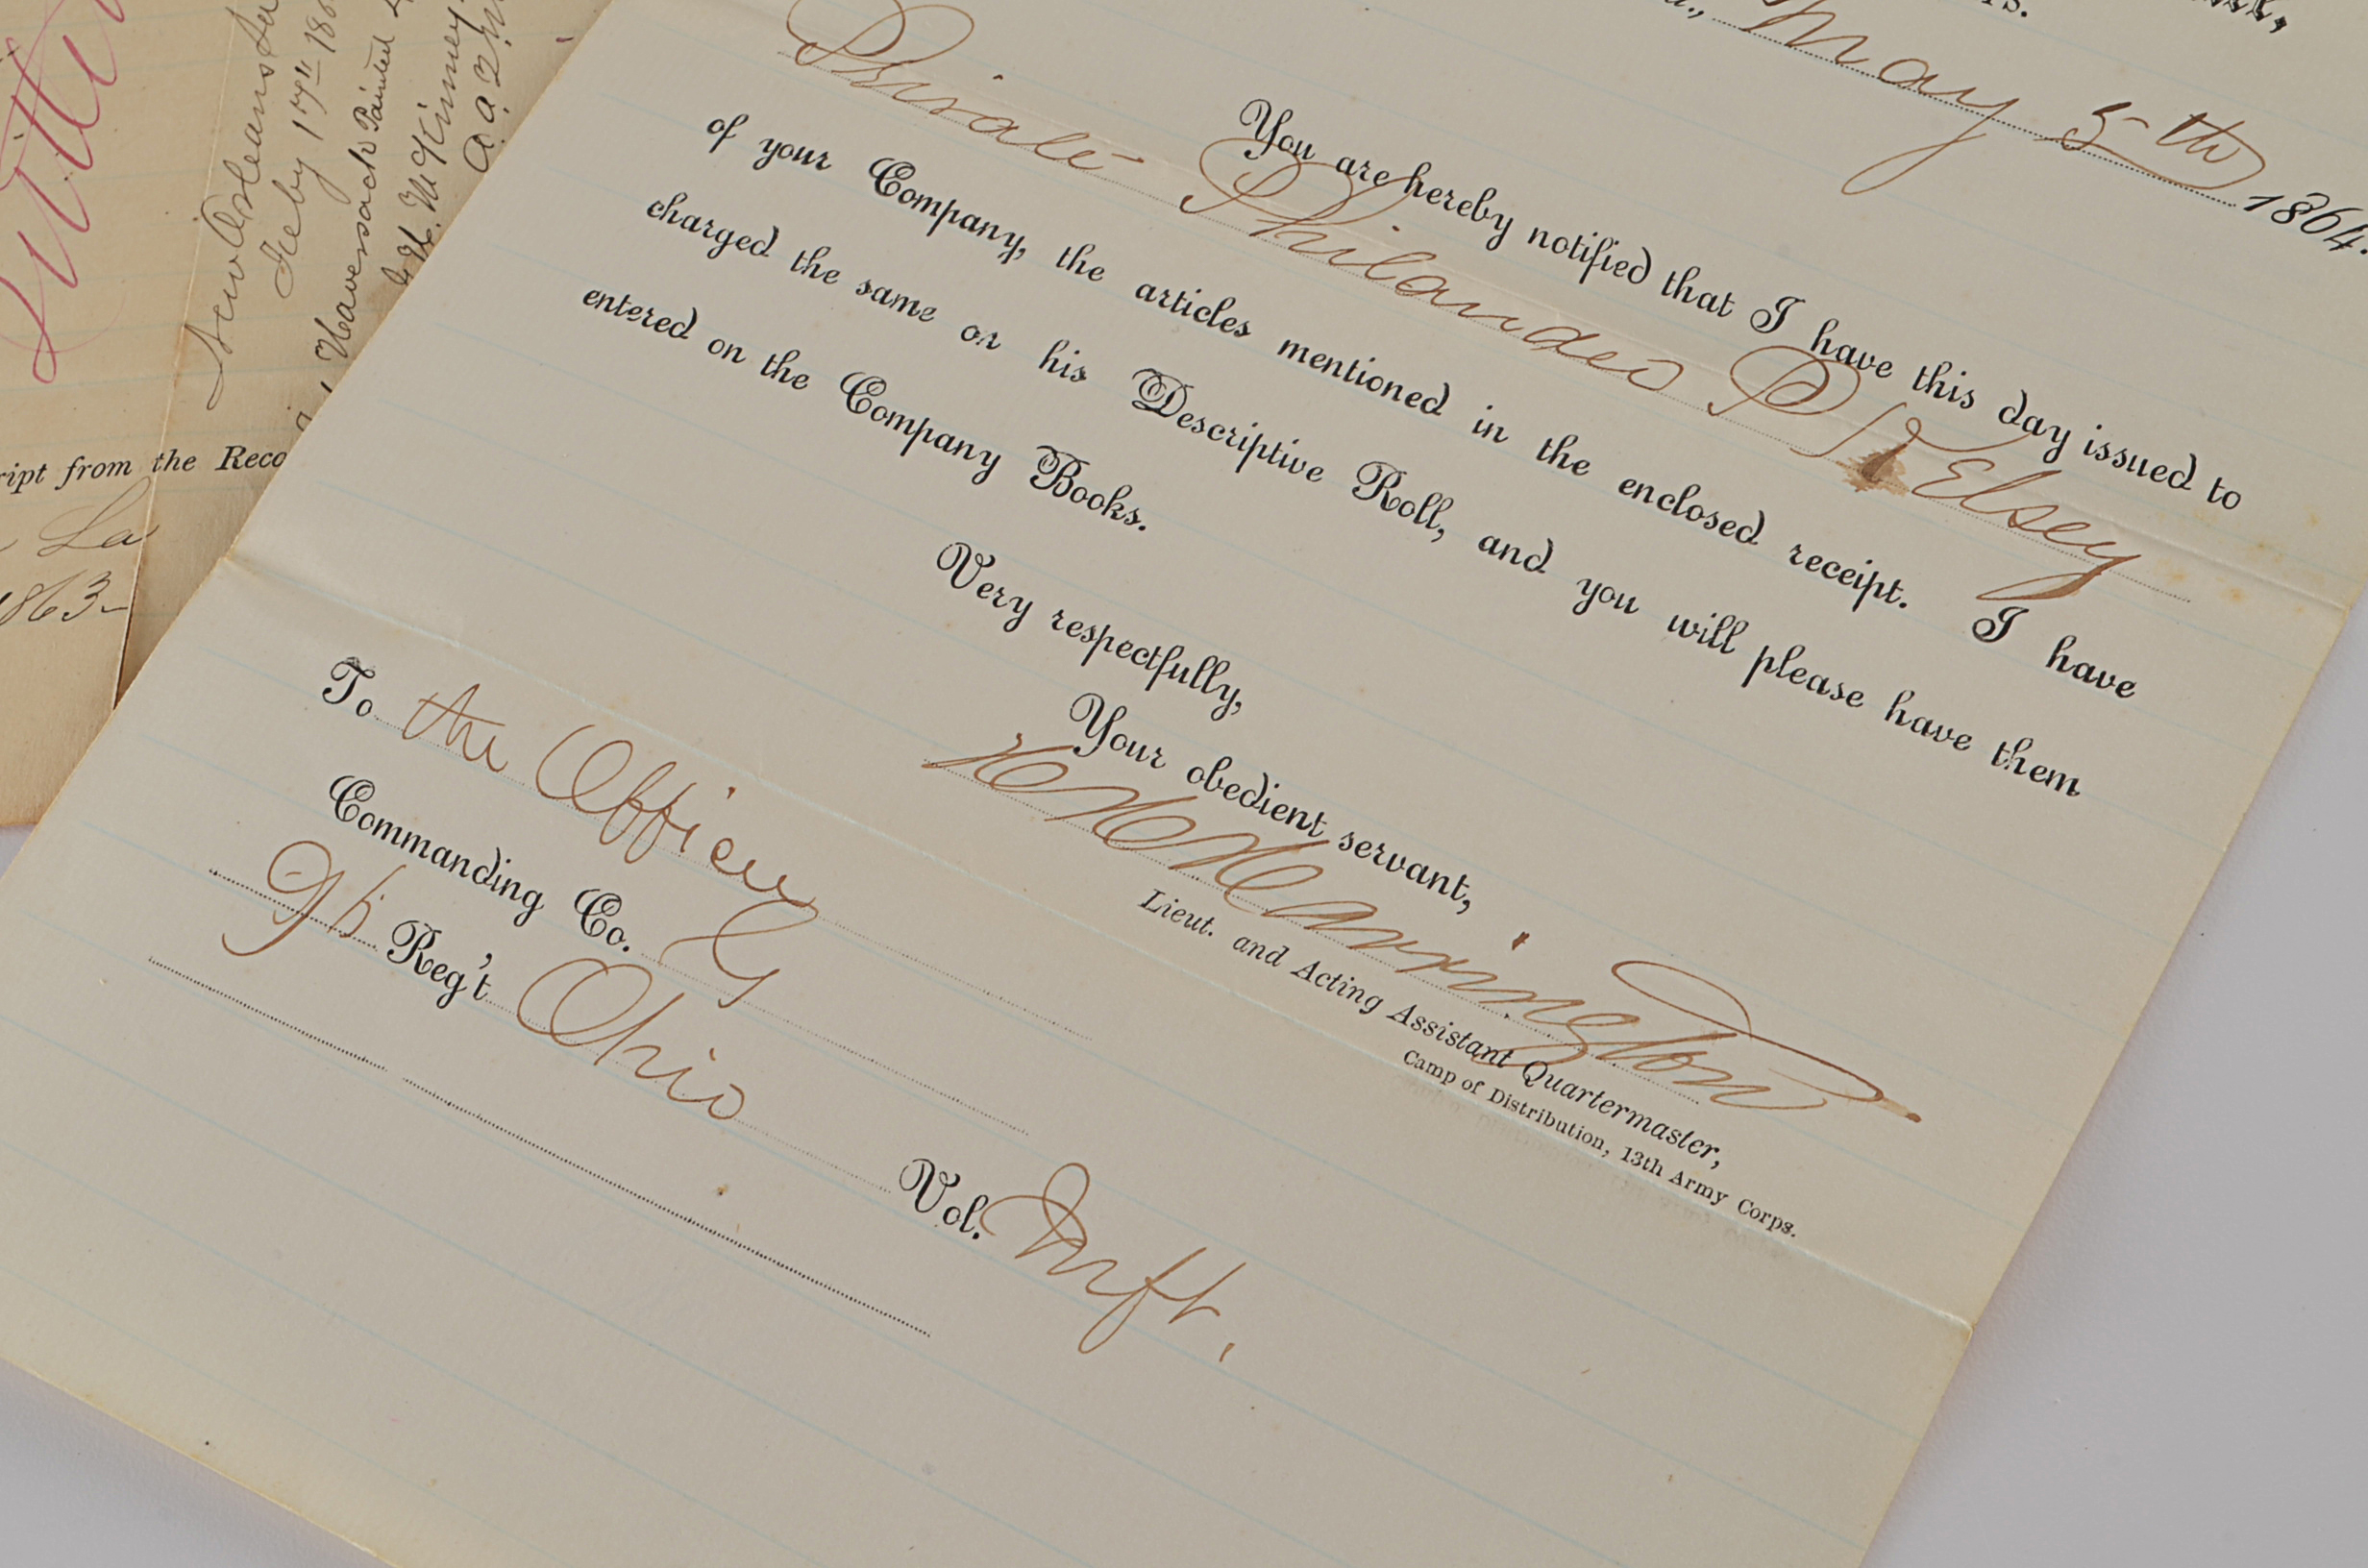 May 5th 1864.
You are hereby notified that I have this day issued to
Private Philander P Kelsey
of your Company, the articles mentioned in the enclosed receipt. I have
charged the same on his Descriptive Roll, and you will please have them
entered on the Company Books.
Very respectfully,
Your obedient servant,
Harrington
Lieut. and Acting Assistant Quartermaster,
Camp of Distribution, 13th Army Corps.
To the Officer
Commanding Co. G
96 Reg't Ohio Vol. Inft.
New Orleans
Feby 17th 186
1 Haversack Painted
McKinney
from the Reco
La
1863